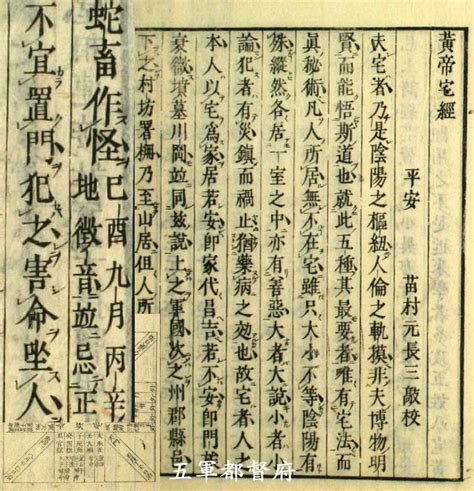 黄帝宅經
平安　苗村元長三敵校
夫宅者乃是陰陽之樞紐人倫之軌摸非夫博物明
賢而能悟斯道也就此五種其最要者唯有宅法而
眞秘術凡人所居無不在宅雖只大小不等陰陽有
殊縱然客居一室之中亦有善惡大者大說小者小
論犯者有災鎮而禍止猶藥病之効也故宅者人之
本人以宅爲家居若安卽家代昌吉若不安卽門族
衰微墳墓川岡並同玆說上之軍國次之州郡縣邑
下之村坊署柵乃至山居但人所
蛇畜作怪巳酉九月丙辛
地徵音竝忌正
不宜置門犯之害命坐人
五軍都督府